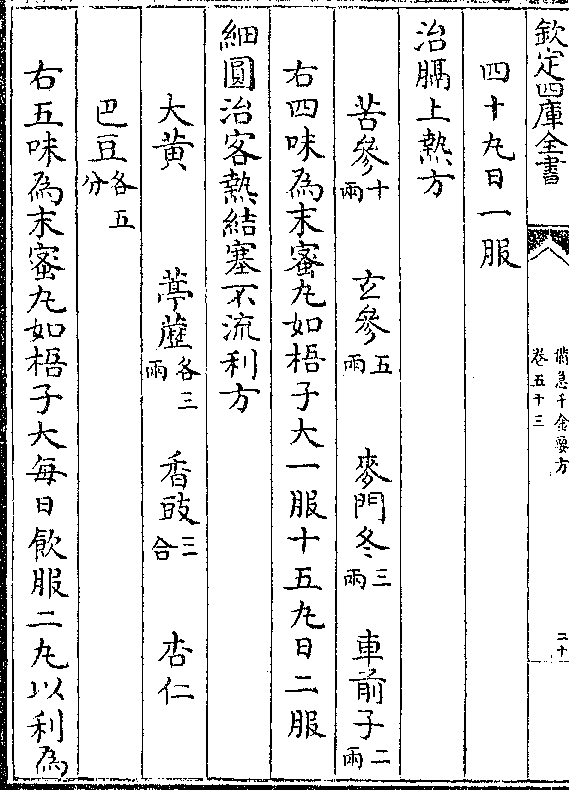 欽定四庫全書
備急千金要方
卷五十三
二十
四十丸日一服
治膈上熱方
苦參十兩 玄參五兩 麥門冬三兩 車前子二兩
右四味為末蜜丸如梧子大一服十五丸日二服
細圓治客熱結塞不流利方
大黃 葶藶各三兩 香豉三合 杏仁
巴豆各五分
右五味為末蜜丸如梧子大每日飲服二丸以利為